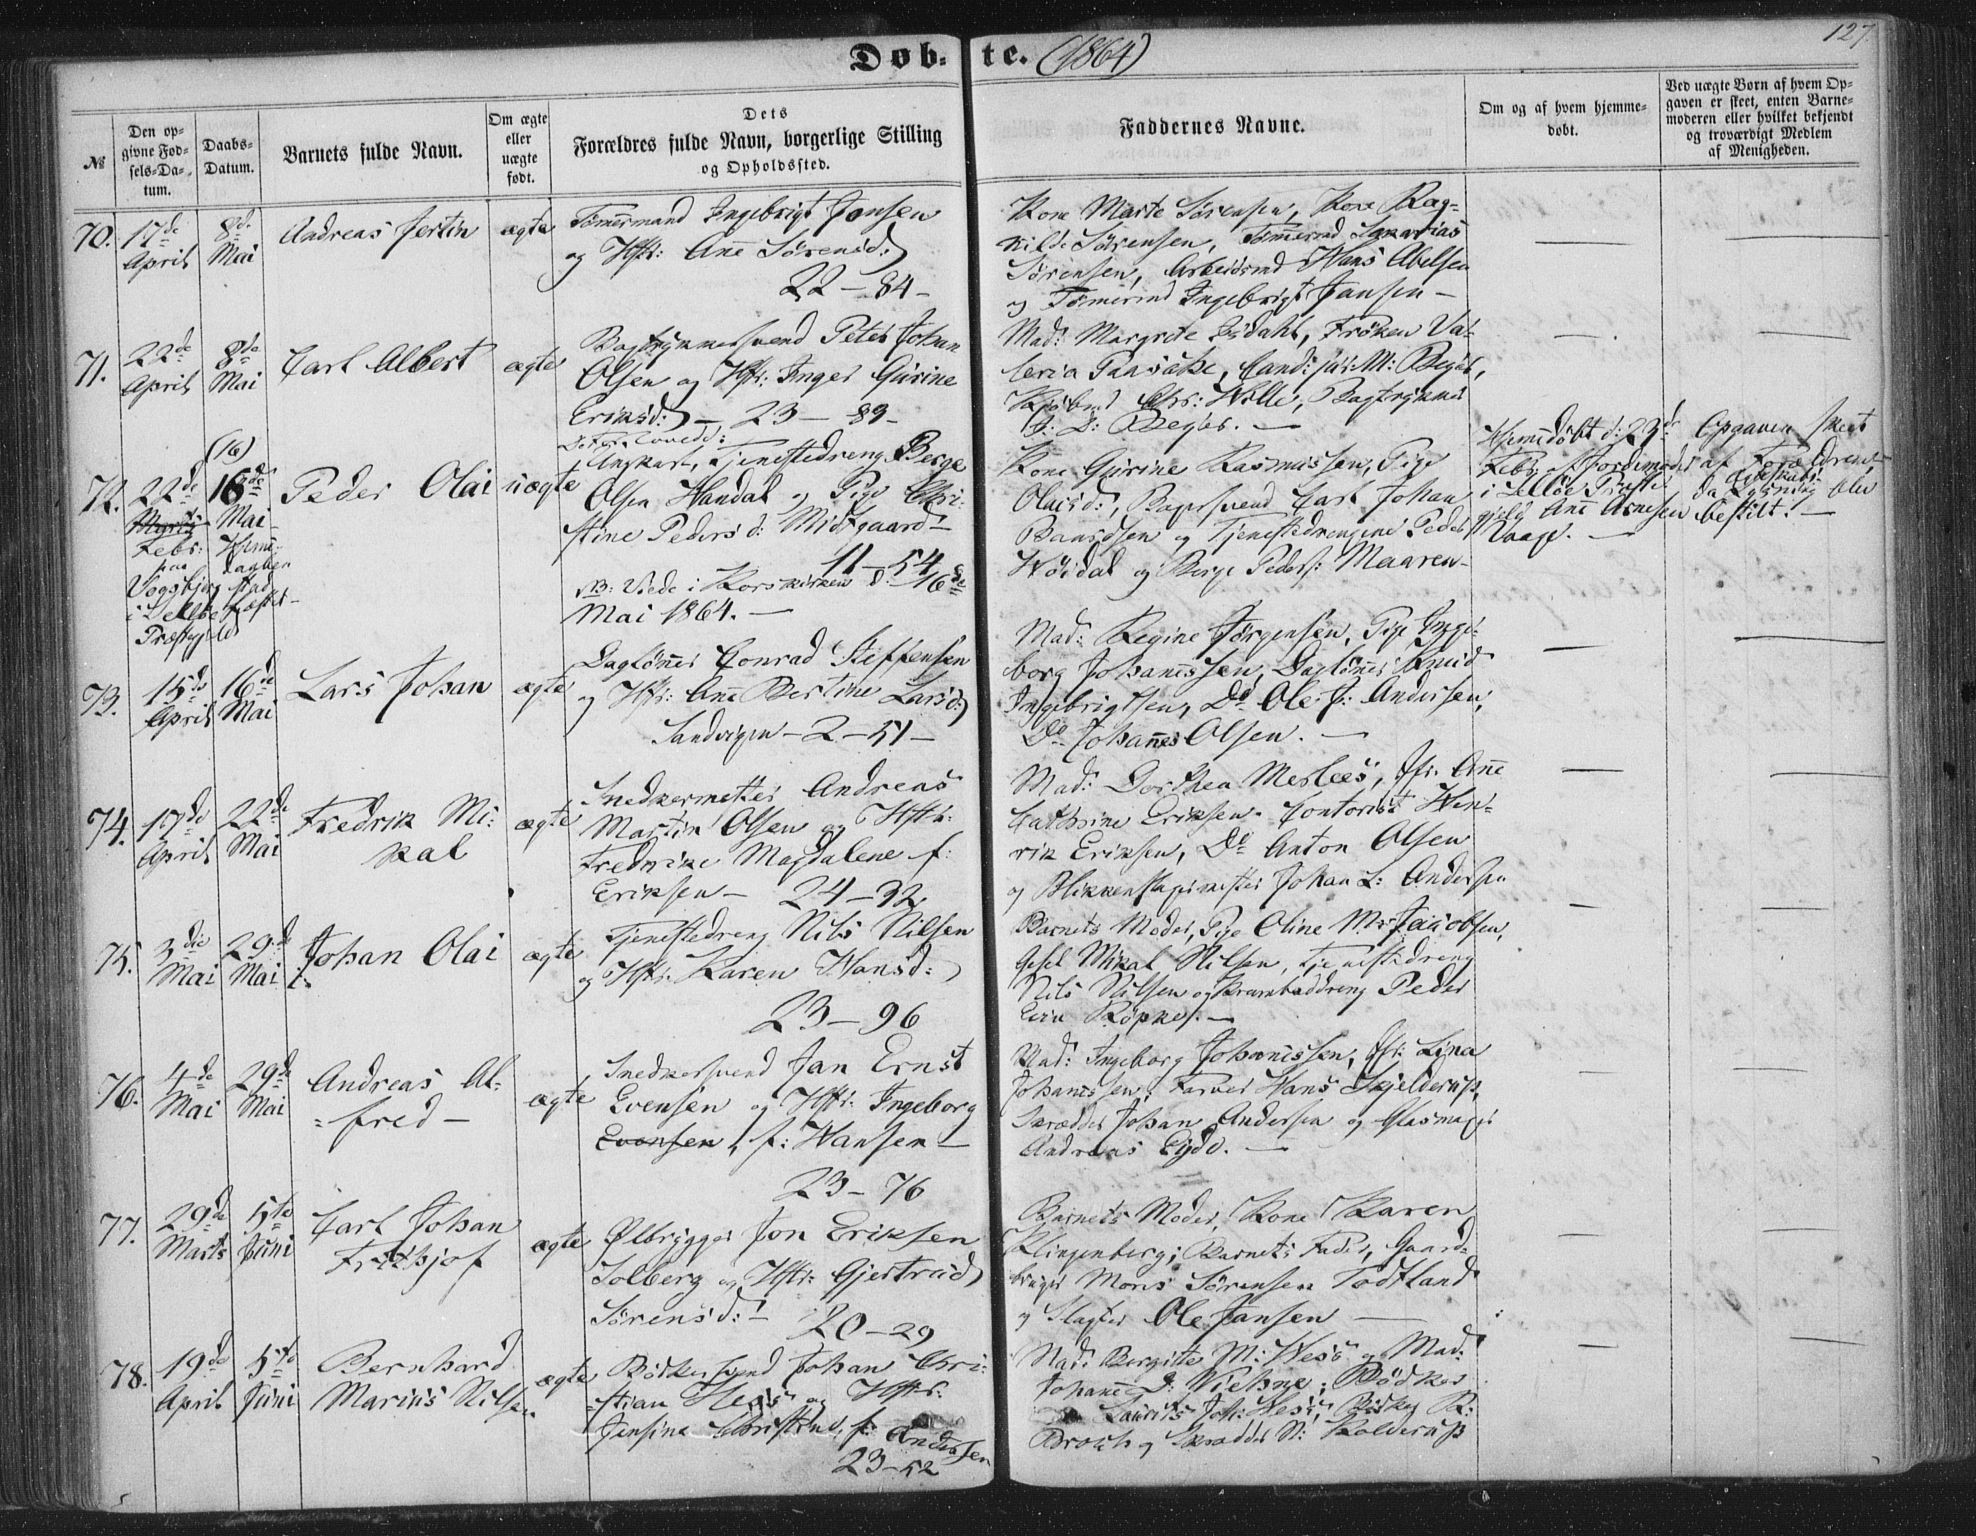 127.
Døb-te. (1864)
№
Den op-
givne Fød-
sels-Da-
tum.
Daabs-
Datum.
Barnets fulde Navn.
Om ægte
eller
uægte
født.
Dets
Forældres fulde Navn, borgerlige Stilling
og Opholdssted.
Faddernes Navne.
Om og af hvem hjemme-
døbt.
Ved uægte Børn af hvem Op-
gaven er skeet, enten Barne-
moderen eller hvilket bekjendt
og troværdigt Medlem
af Menigheden.
70.
17de
April
8de
Mai
Andreas Jertin
ægte
Tømermand Ingebrigt Jansen
og Hstr: Ane Sörensd:
22 - 84 -
Kone Marte Sörensen, Kone Rag-
nild Sörensen, Tömermd
Sörensen, Arbeidsmd Hans Abelsen
og Tömermd Ingebrigt Jansen -
71.
22de
April
8de
Mai
Carl Albert
ægte
Bogtrykkersvend Peter Johan
Olsen og Hstr: Inger Gurine
Eriksd: - 23 - 89 -
Mad: Margrete Frøken Va-
leria Cand: jur: M: Beyer,
Kjöbmd Chr: Wille, Bogtrykker
F: D: Beyer. -
72.
22de
Marts
Febr:
paa
i Lellöe
Præstgjeld
(16)
16de
Mai
Hjemme
daaben
stad-
fæstet -
Peder Olai
uægte
De Forlovede:
Ungkarl, Tjenestedreng Berge
Olsen Handal og Pige Chri-
stine Pedersd: Midtgaard -
11 - 54
NB: Viede i Korskirken d: 16de
Mai 1864. -
Kone Gurine Rasmussen, Pige
Olaisd:, Carl Johan
og Tjenestedrengene Peder
og Berge Peders: Maaren -
Hjemmedöbt d: 23d
Feby af Jordemoder
i Lellöe Præste-
gjeld Ane Arnesen
Vaage. -
Opgaven skeet
af Forældrene
da Lysning blev
bestilt. -
73.
15de
April
16de
Mai
Lars Johan
ægte
Daglönner Conrad Steffensen
og Hstr: Ane Bertine Larsd:
Sandvigen - 2 - 51 -
Mad: Regine Jörgensen, Pige Inge-
borg Johannessen, Daglönner Knud
Ingebrigtsen, Do Ole J: Andersen,
Do Johannes Olsen. -
74.
17de
April
22de
Mai
Fredrik Mi-
kal
ægte
Snedkermester Andreas
Martin Olsen og Hstr:
Fredrike Magdalene f:
Eriksen - 24 - 32
Mad: Dorthea Merlees, Jfr: Ane
Cathrine Eriksen. Contorist Hen-
rik Eriksen, Do Anton Olsen
og Blikkenslagermester Johan L: Andersen
75.
3die
Mai
29de
Mai
Johan Olai
ægte
Tjenestedreng Nils Nilsen
og Hstr: Karen Hansd:
23 - 96
Barnets Moder, Pige Oline M: Jacobsen,
Gesel Mikal Nilsen, Tjenestedreng
Nils Nilsen og Krambaddreng Peder
Röpke. -
76.
4de
Mai
29de
Mai
Andreas Al-
fred -
ægte
Snedkersvend Jan Ernst
Evensen og Hstr: Ingeborg
Evensen f: Hansen -
23 - 76
Mad: Ingeborg Johannessen, Jfr: Lina
Johannessen, Farver Hans Skjelderup,
Skrædder Johan Andersen og Glasmager
Andreas Eyde. -
77.
29de
Marts
5te
Juni
Carl Johan
Frithjof
ægte
Ølbrygger Jon Eriksen
Solberg og Hstr: Gjertrud
Sörensd: - 20 - 29
Barnets Moder, Kone Karen
Klingenberg; Barnets Fader, Gaard-
bruger Mons Sörensen Todtland
og Slagter Ole Jansen -
78.
19de
April
5te
Juni
Bernhard
Marius Nilsen
ægte
Bödkersvend Johan Chri-
stian Hess og Hstr:
Jensine Christine, f: Andersen
23 - 52
Mad: Bergitte M: Hess og Mad:
Johanne D: Viehne; Bödker
Laurits Joh: Hess, Bödker R:
Broch og Skrædder N: Kolderup